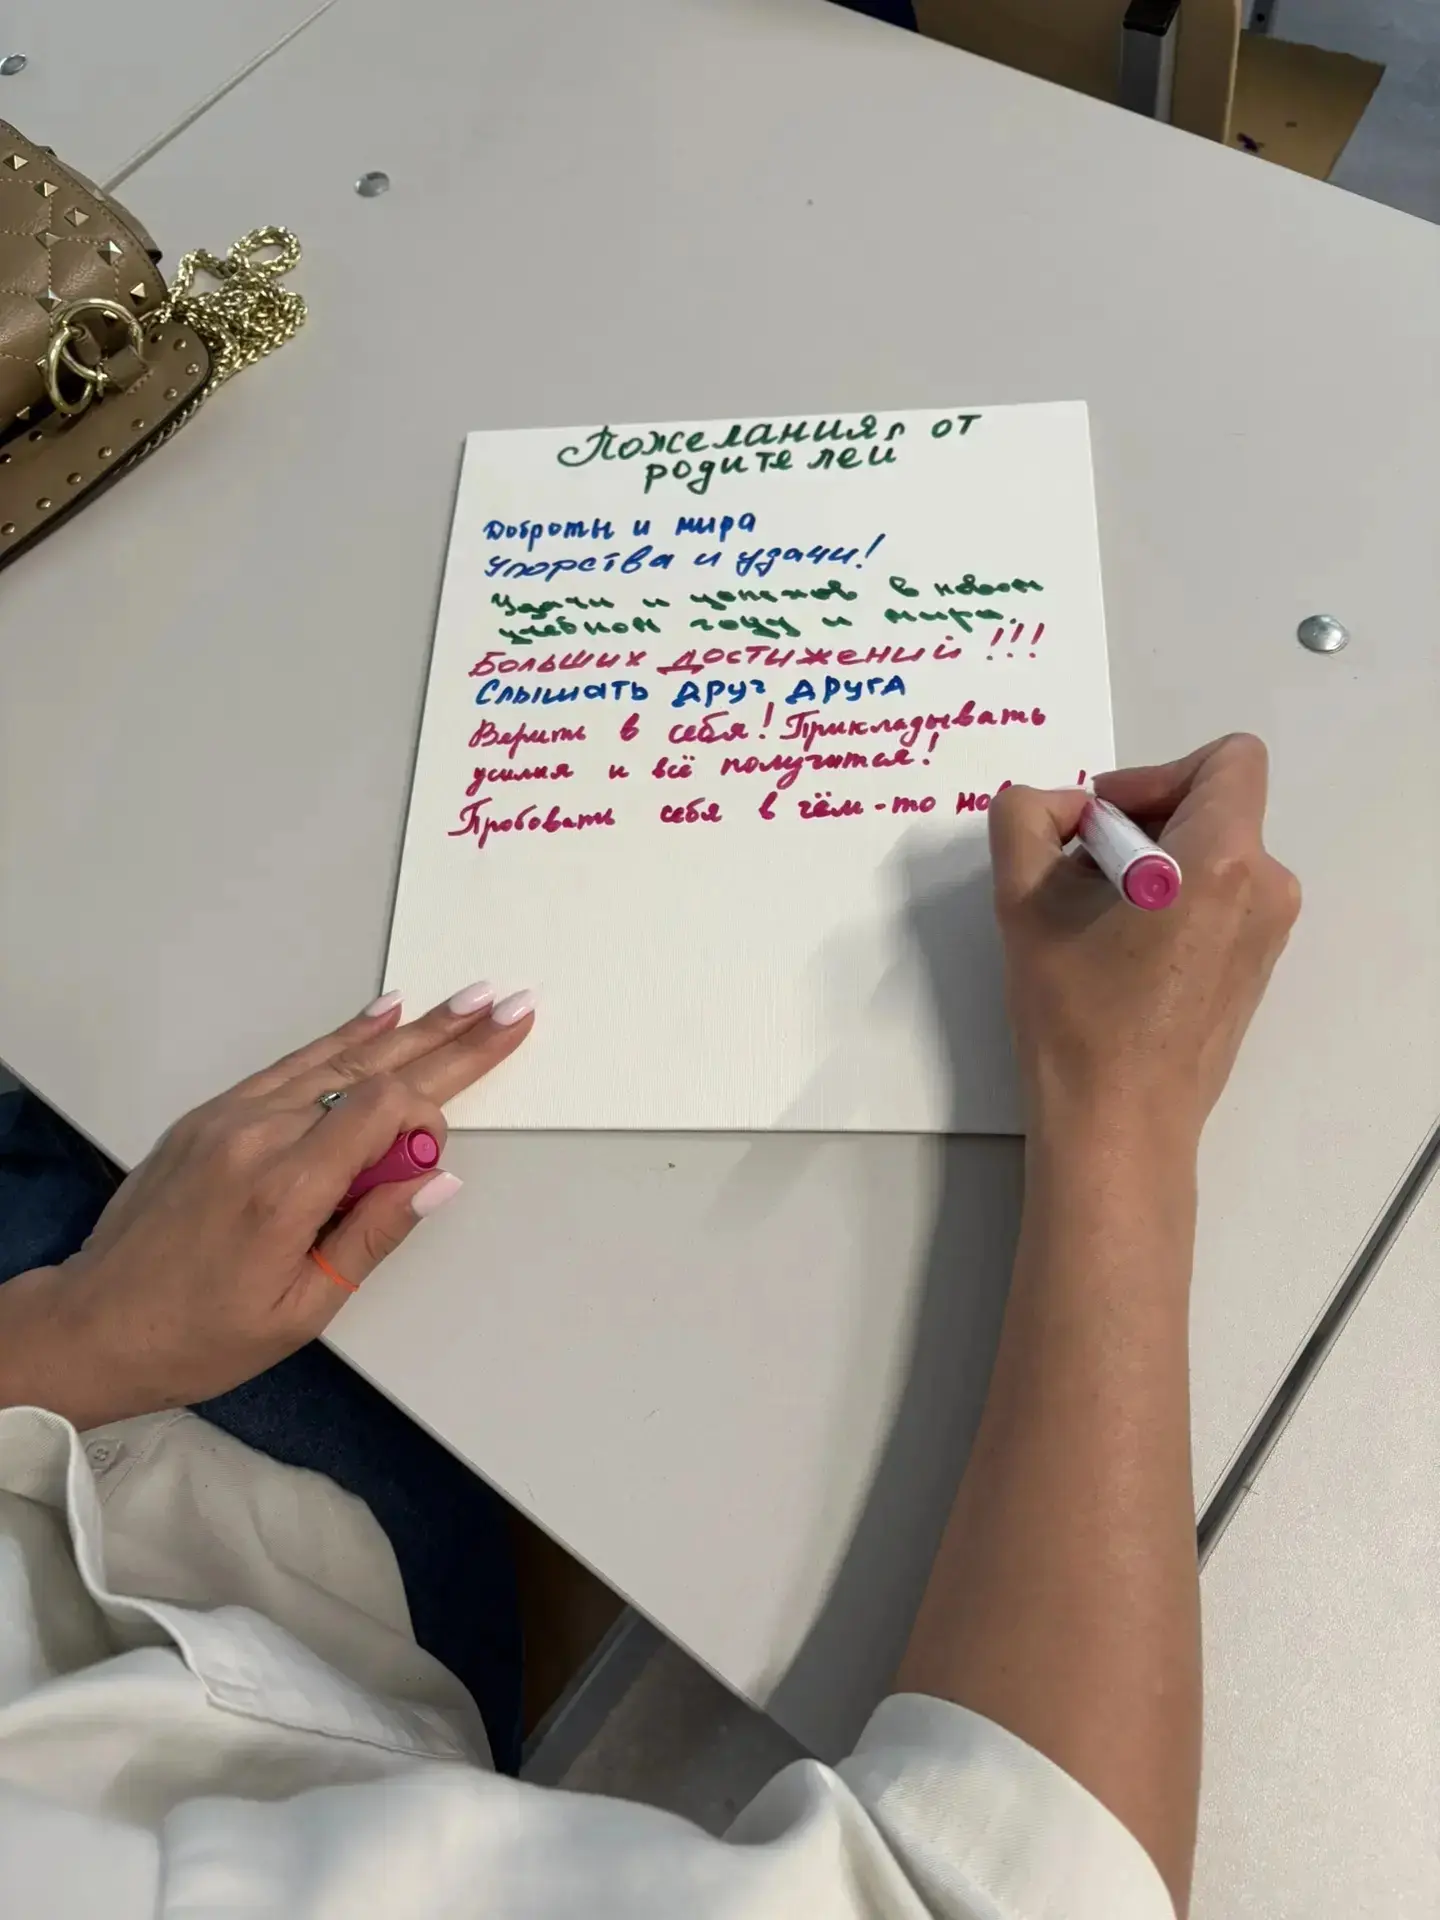 Пожелания от
родителей
Доброты и мира
Упорства и удачи!
Удачи и успехов в новом
учебном году и мира.
Больших достижений!!!
Слышать друг друга
Верить в себя! Прикладывать
усилия и всё получится!
Пробовать себя в чём-то